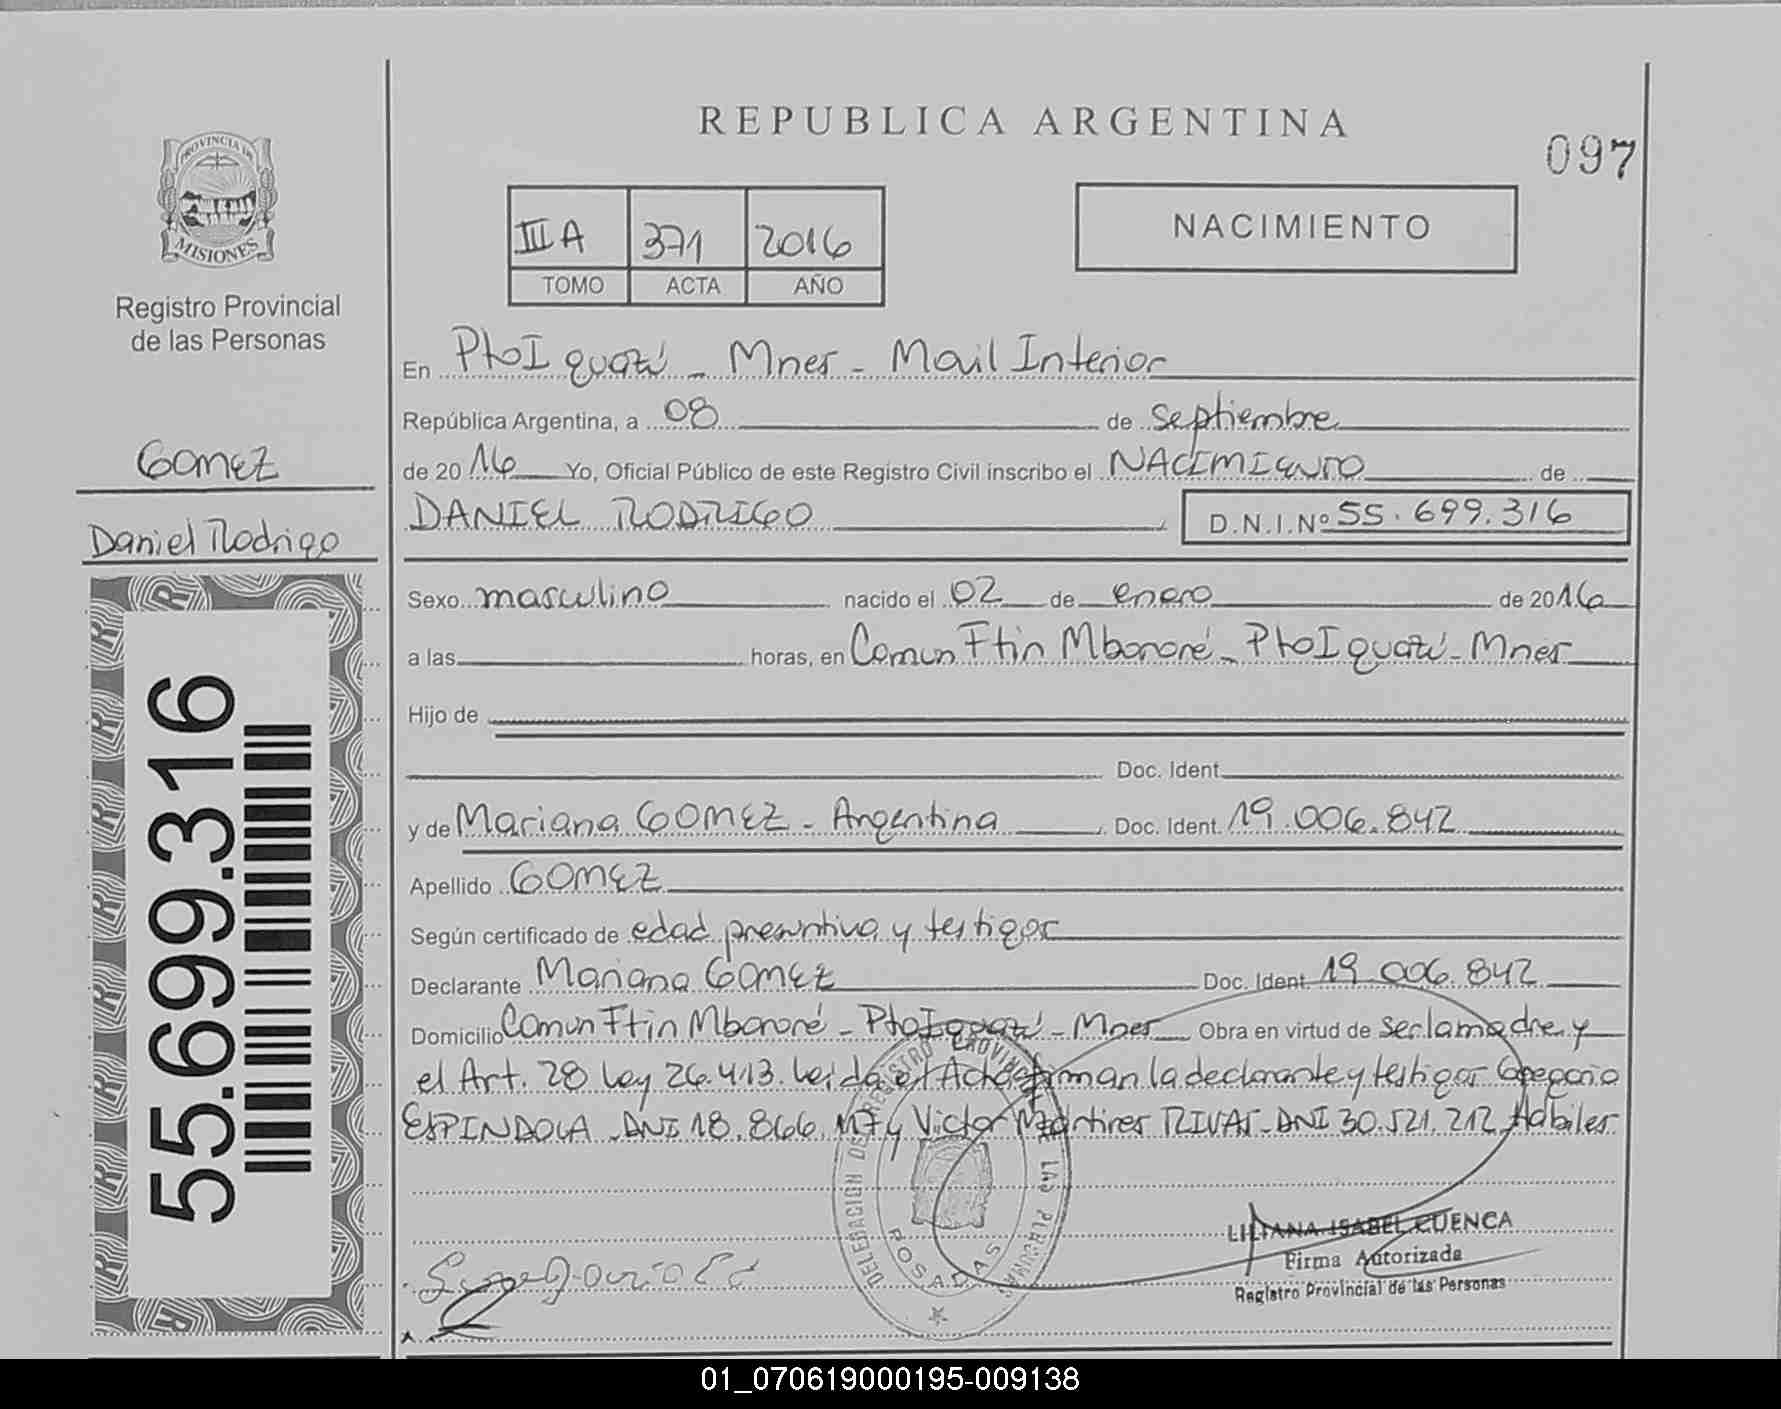 REPUBLICA ARGENTINA
097
PROVINCIA DE
MISIONES
Registro Provincial
de las Personas
III A 371 2016
TOMO ACTA AÑO
NACIMIENTO
En Pto Iguazú - Mnes - Movil Interior
República Argentina, a 08 de septiembre
de 2016 Yo, Oficial Público de este Registro Civil inscribo el NACIMIENTO de
DANIEL RODRIGO D.N.I.Nº 55.699.316
GOMEZ
Daniel Rodrigo
55.699.316
Sexo masculino nacido el 02 de enero de 2016
a las horas, en Comun Ftin Mbororé - Pto Iguazú - Mnes
Hijo de
Doc. Ident.
y de Mariana GOMEZ - Argentina Doc. Ident. 19.006.842
Apellido GOMEZ
Según certificado de edad presuntiva y testigos
Declarante Mariana GOMEZ Doc. Ident. 19.006.842
Domicilio Comun Ftin Mbororé - Pto Iguazú - Mnes Obra en virtud de ser la madre y
el Art. 28 Ley 26.413. Leida el Acta firman la declarante y testigos Gregorio
ESPINDOLA - DNI 18.866.117 y Victor Mártires RIVAS - DNI 30.521.212 Habiles
DELEGACION DE REGISTRO PROVINCIAL DE LAS PERSONAS
POSADAS
LILIANA ISABEL CUENCA
Firma Autorizada
Registro Provincial de las Personas
01_070619000195-009138